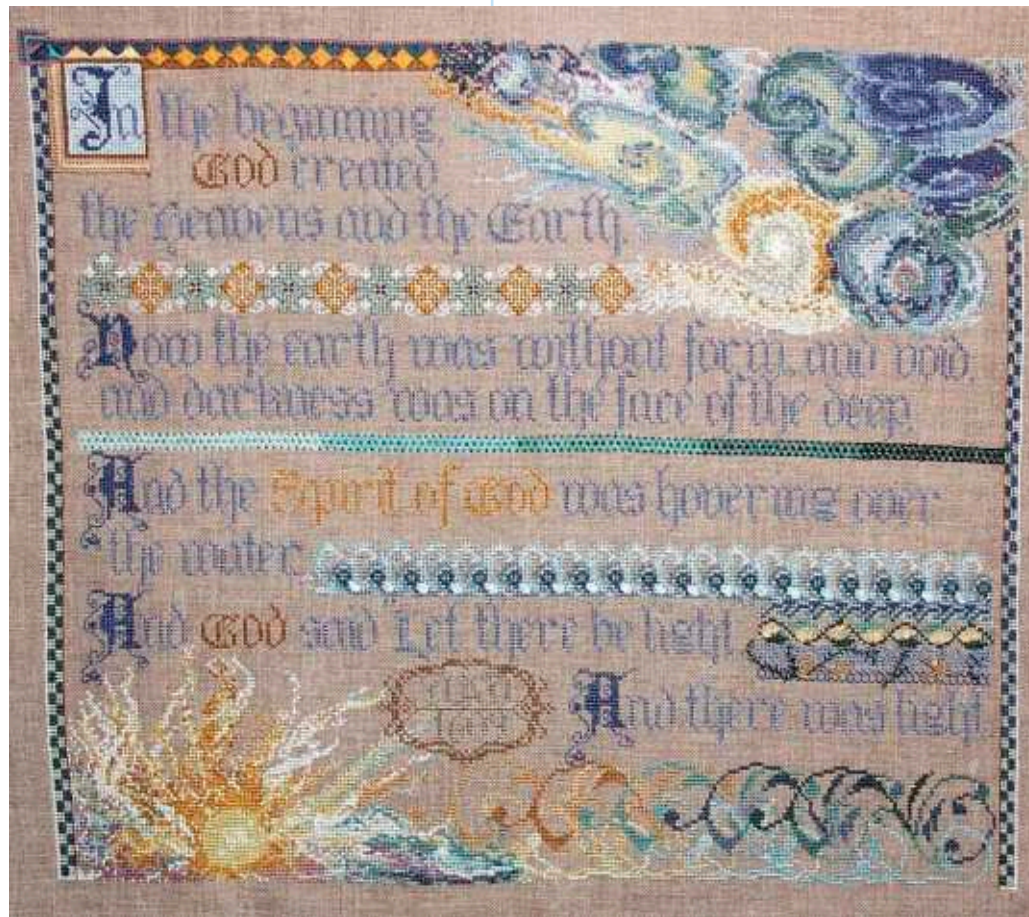 In the beginning
God created
the Heavens and the Earth.
Now the earth was without form, and void,
and darkness was on the face of the deep.
And the Spirit of God was hovering over
the water.
And God said "Let there be light
And there was light